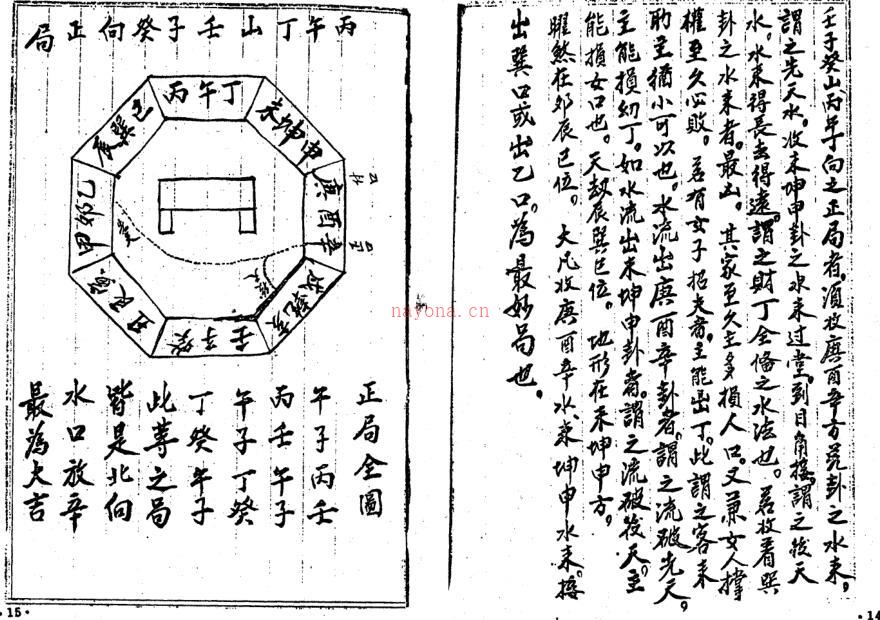 壬子癸山丙午丁向之正局者。須收庚酉辛方兌卦之水來,
謂之先天水。收未坤申卦之水來过堂。到目角接謂之後天
水。水來得長去得遠。謂之財丁全俻之水法也。若收着巽
卦之水來者。最凶。其家至久主多損人口。又兼女人撑
權至久必敗。若有女子招夫者。主能出丁。此謂之客來
助主猶小可以也。水流出庚酉辛卦者。謂之流破先天,
主能損幼丁。如水流出未坤申卦者。謂之流破後天。主
能損女口也。天劫辰巽巳位。地形在未坤申方。
曜煞在卯辰巳位。大凡收庚酉辛水、來坤申水來。接
出巽口或出乙口為最妙局也。
·14
丙午丁山壬子癸向正局
丙午丁
未坤申
庚酉辛
戌乾亥
壬子癸
丑艮寅
甲卯乙
辰巽巳
正局全圖
午子丙壬
丙壬午子
午子丁癸
丁癸午子
此等之局
皆是北向
水口放辛
最為大吉
·15·
nayona.cn